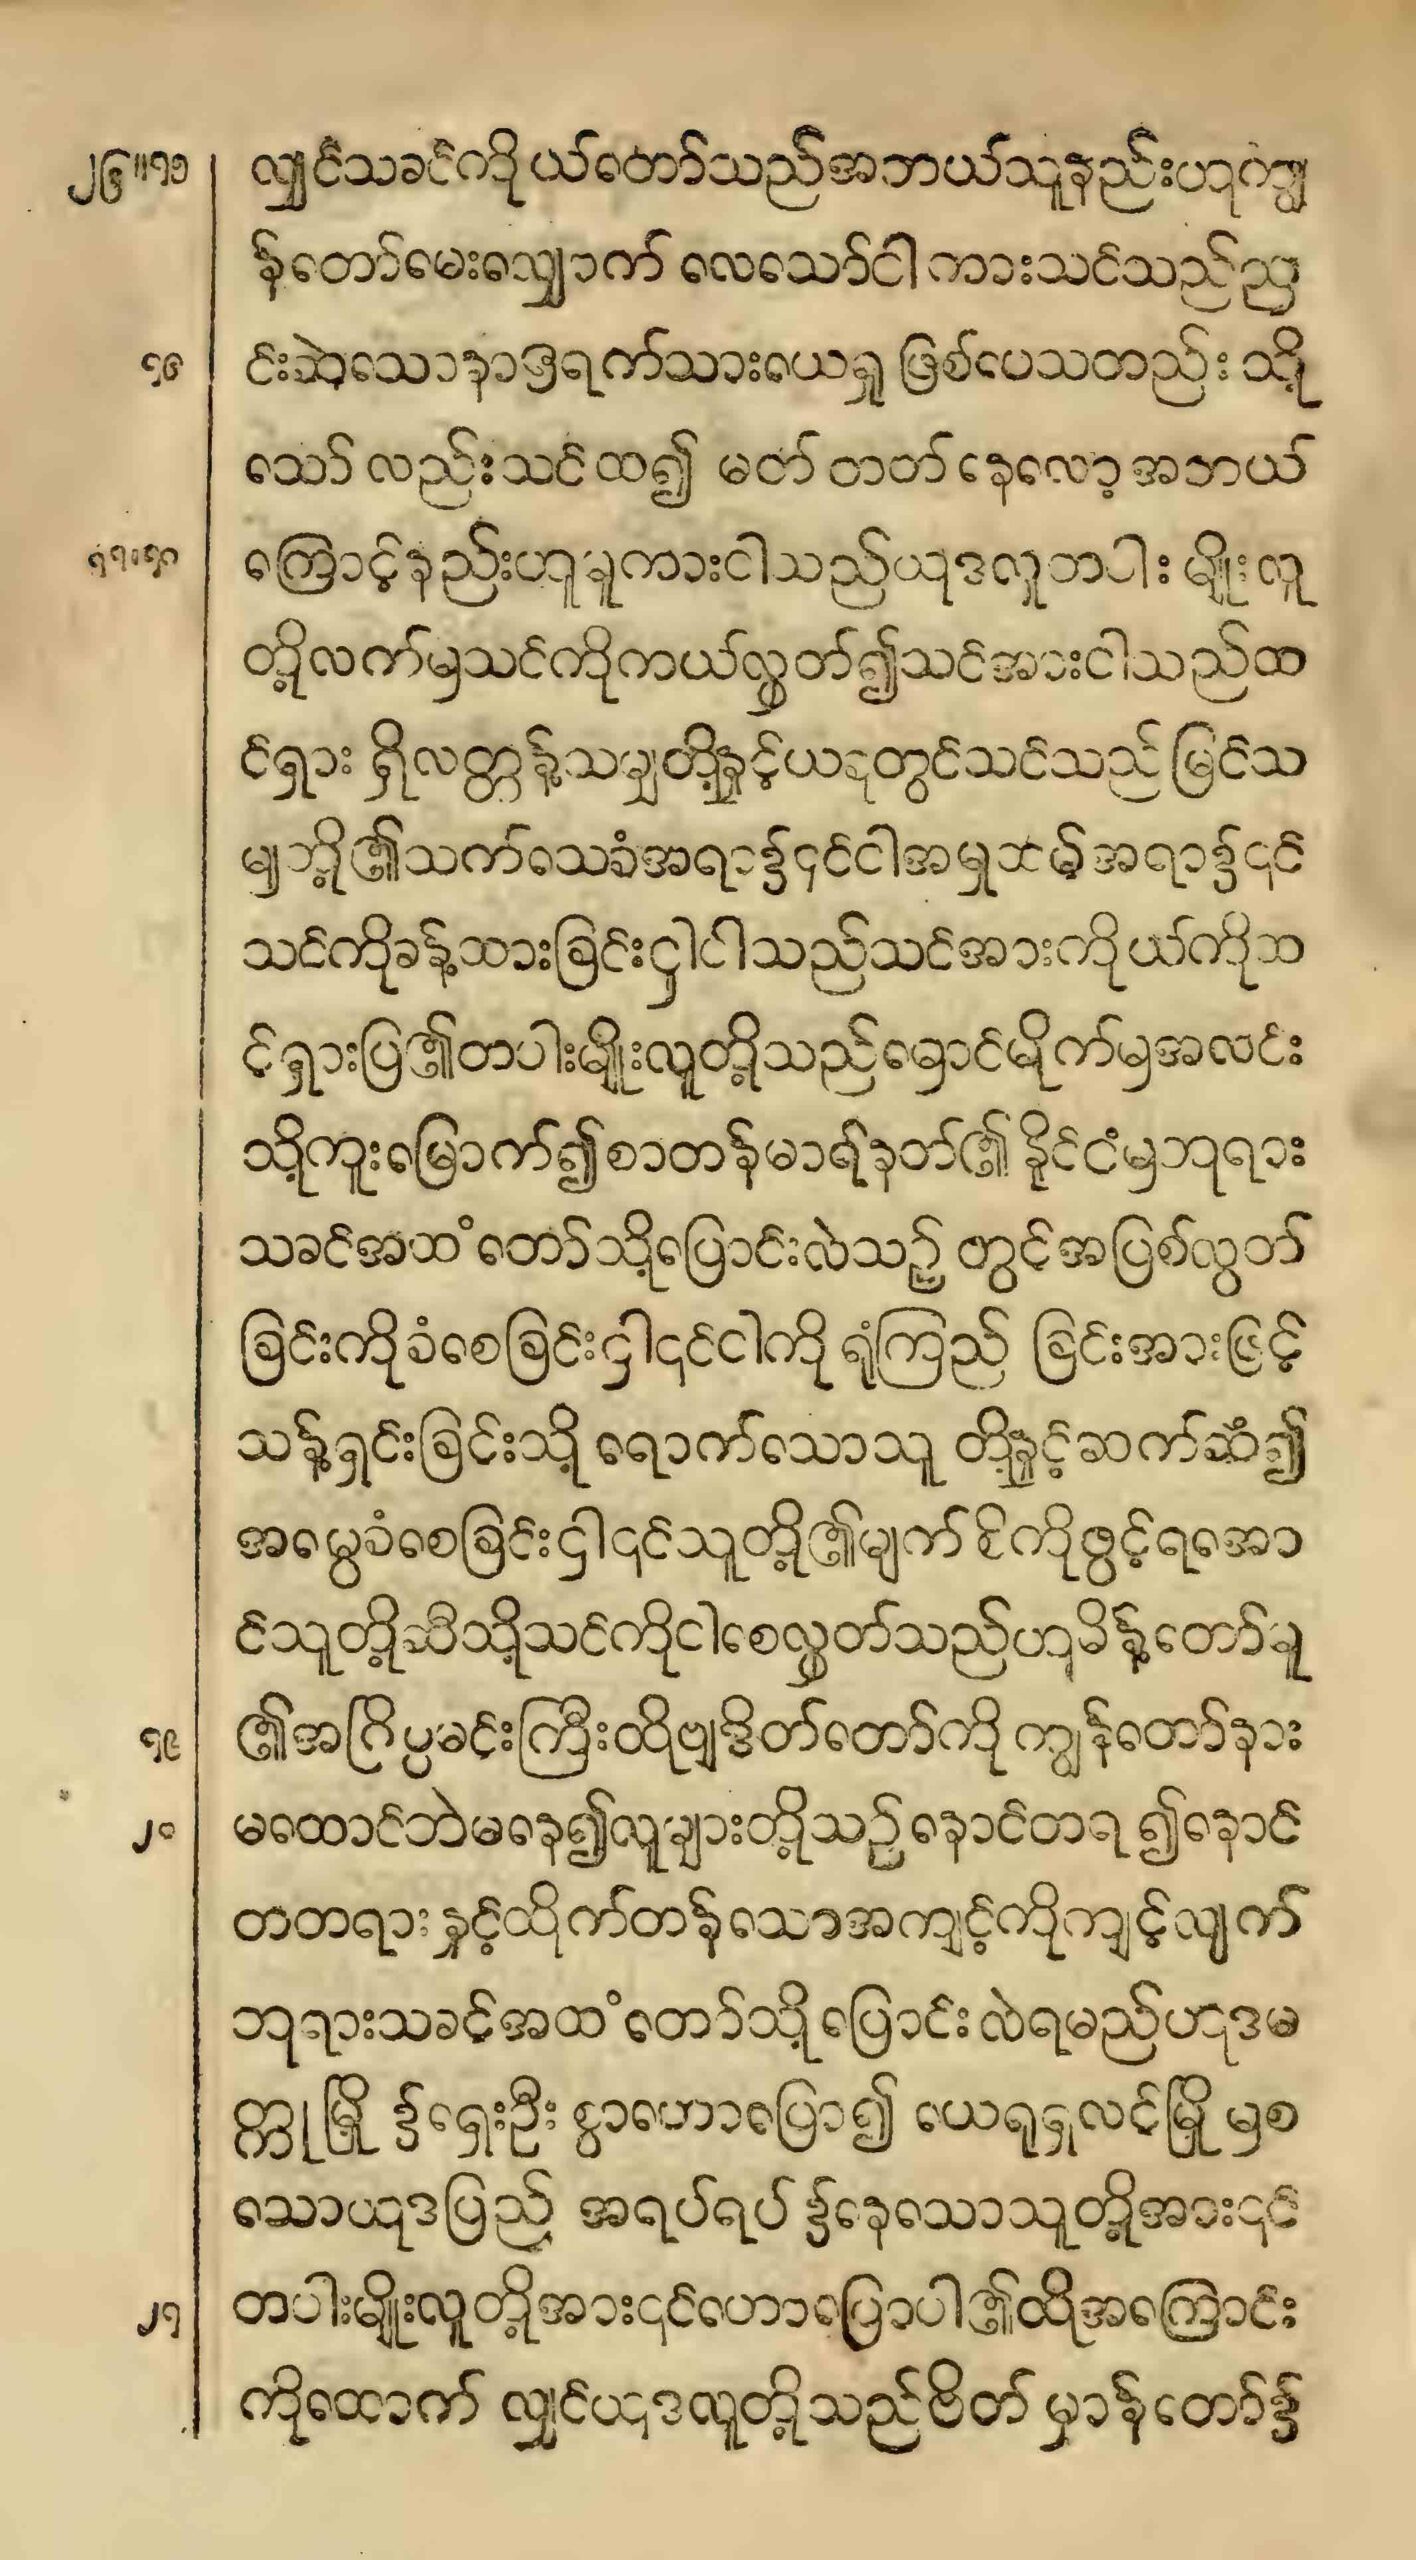 ၂၆။၁၅ လျှင်သခင်ကိုယ်တော်သည်အဘယ်သူနည်းဟုကျွ
န်တော်မေးလျှောက် လေသော်ငါကားသင်သည်ညှ
၁၆ င်းဆဲသောနာဇရက်သားယေရှုဖြစ်ပေသတည်း သို့
သော် လည်းသင်ထ၍ မတ် တတ် နေလော့အဘယ်
၁၇။၁၈ ကြောင့်နည်းဟူမူကားငါသည်ယုဒလူတပါး မျိုးလူ
တို့လက်မှသင်ကိုကယ်လွှတ်၍သင်အားငါသည်ထ
င်ရှား ရှိလတ္တန့်သမျှတို့နှင့်ယခုတွင်သင်သည်မြင်သ
မျှတို့၏သက်သေခံအရာ၌၎င်ငါအမှုထမ်အရာ၌၎င်
သင်ကိုခန့်ထားခြင်းငှါငါသည်သင်အားကိုယ်ကိုထ
င်ရှားပြ၏တပါးမျိုးလူတို့သည်မှောင်မိုက်မှအလင်း
သို့ကူးမြောက်၍စာတန်မာရ်နတ်၏ နိုင်ငံမှဘုရား
သခင်အထံ တော်သို့ပြောင်းလဲသဉ် တွင်အပြစ်လွတ်
ခြင်းကိုခံစေခြင်းငှါ၎င်ငါကို ရုံကြည် ခြင်းအားဖြင့်
သန့်ရှင်းခြင်းသို့ ရောက်သောသူ တို့နှင့်ဆက်ဆံ၍
အမွေခံစေခြင်းငှါ၎င်သူတို့၏မျက်စိကိုဖွင့်ရအော
င်သူတို့ဆီသို့သင်ကိုငါစေလွှတ်သည်ဟုမိန့်တော်မူ
၁၉ ၏အဂြိပ္ပမင်းကြီးထိုဗျာဒိတ်တော်ကို ကျွန်တော်နား
၂၀ မထောင်ဘဲမနေ၍လူများတို့သဉ်နောင်တရ၍နောင်
တတရား နှင့်ထိုက်တန်သောအကျင့်ကိုကျင့်လျက်
ဘုရားသခင့်အထံ တော်သို့ပြောင်းလဲရမည်ဟုဒမ
က္ကုမြို့၌ရှေးဦး စွာဟောပြော၍ ယေရုရှလင်မြို့မှစ
သောယုဒပြည် အရပ်ရပ်၌နေသောသူတို့အား၎င်
၂၁ တပါးမျိုးလူတို့အား၎င်ဟောပြောပါ၏ထိုအကြောင်း
ကိုထောက် လျှင်ယုဒလူတို့သည်ဗိတ် မှာန်တော်၌